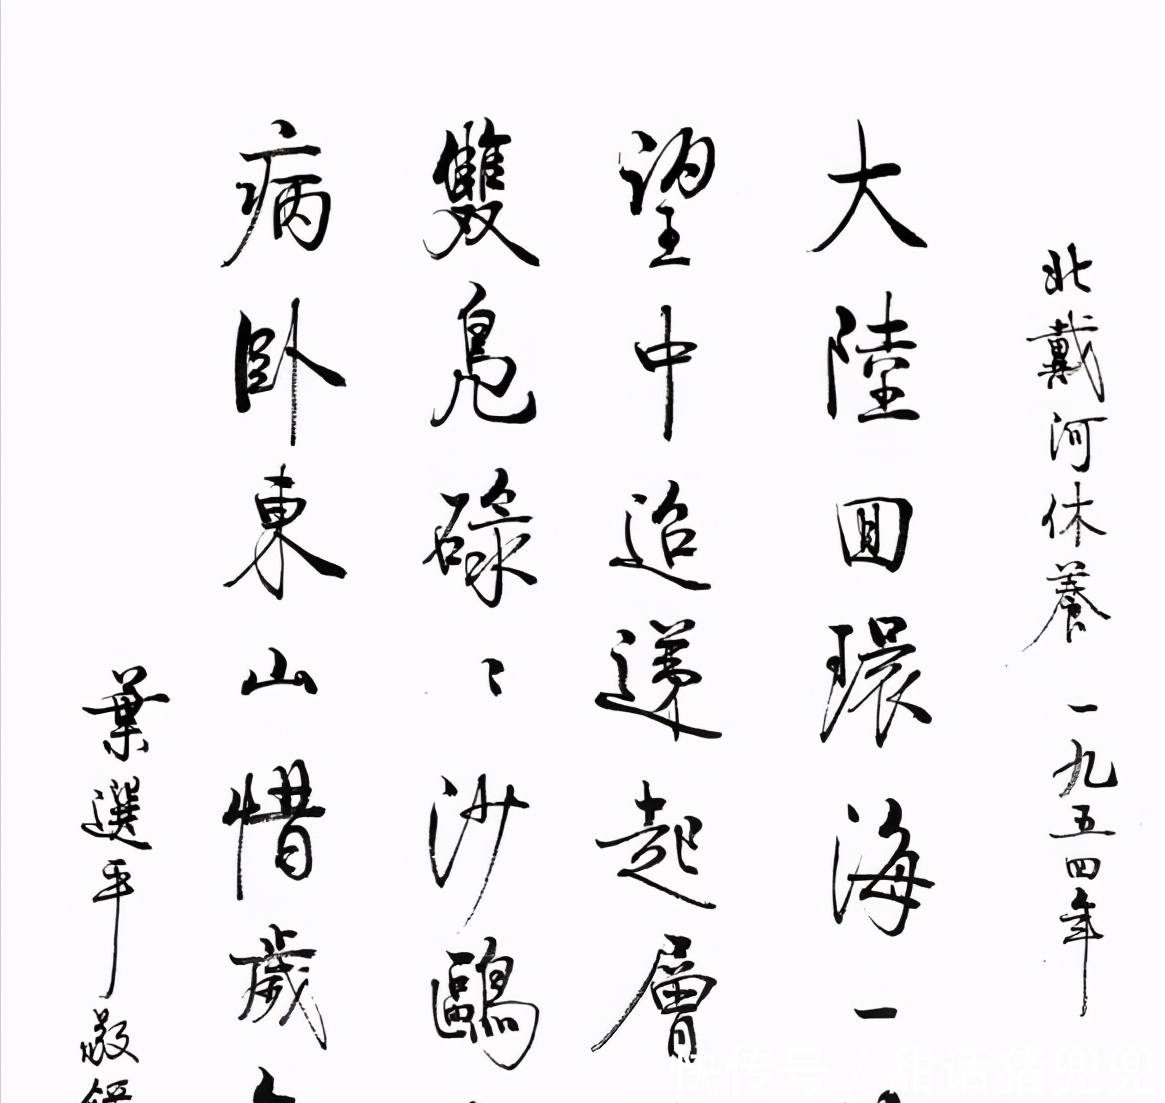 北戴河休養 一九五四年
大陸圓環海一
望中迢遞起層
雙鳧碌〻沙鷗
病臥東山惜歲
葉選平敬錄
快传号 / 甜话猪兜兜